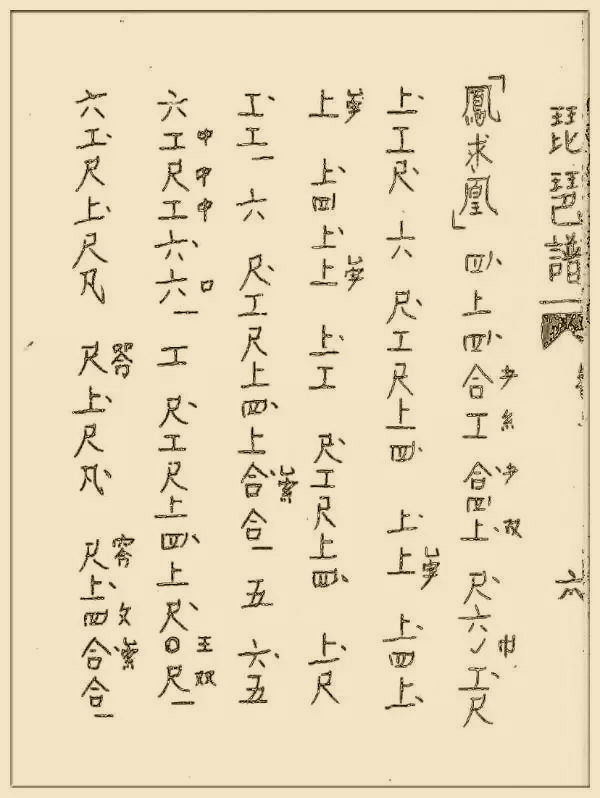 琵琶譜 六
「鳳求凰」 四、上 四、合 工 合、四 上、 尺、六 工、尺
上、工 尺、 六 尺、工 尺 上 四、 上、上 上 四 上、
上、 上、四 上、上 上、工 尺、工 尺 上 四、 上、尺
工、工一 六 尺、工 尺 上 四、上 合、合一 五 六、五
六 工 尺 工 六、六一 工 尺、工 尺 上 四、上 尺、〇 尺一
六 工、尺 上、尺 凡 尺 上、尺 凡、 尺 上、四 合、合一